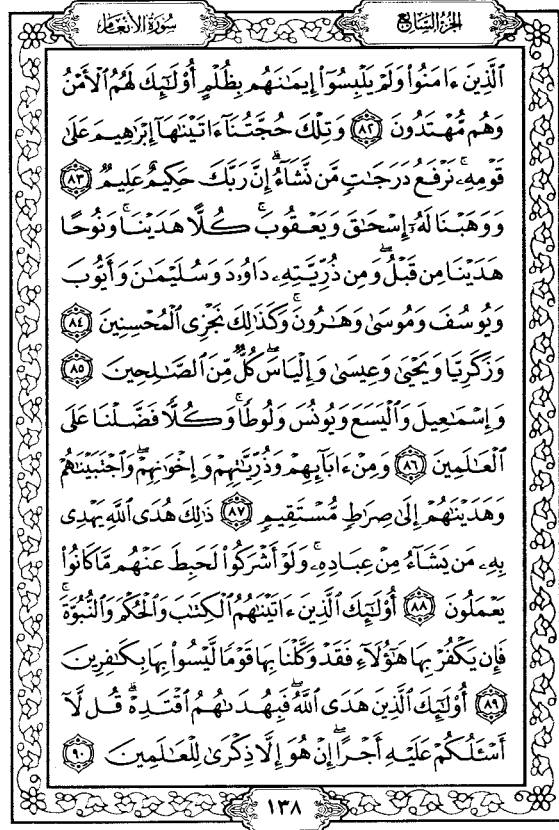 سُورَةُ الأَنعَام
الجُزءُ السَّابِع
ٱلَّذِينَ ءَامَنُوا۟ وَلَمْ يَلْبِسُوٓا۟ إِيمَـٰنَهُم بِظُلْمٍ أُو۟لَـٰٓئِكَ لَهُمُ ٱلْأَمْنُ
وَهُم مُّهْتَدُونَ ٨٢ وَتِلْكَ حُجَّتُنَآ ءَاتَيْنَـٰهَآ إِبْرَٰهِيمَ عَلَىٰ
قَوْمِهِۦۚ نَرْفَعُ دَرَجَـٰتٍ مَّن نَّشَآءُۗ إِنَّ رَبَّكَ حَكِيمٌ عَلِيمٌ ٨٣
وَوَهَبْنَا لَهُۥٓ إِسْحَـٰقَ وَيَعْقُوبَۚ كُلًّا هَدَيْنَاۚ وَنُوحًا
هَدَيْنَا مِن قَبْلُۖ وَمِن ذُرِّيَّتِهِۦ دَاوُۥدَ وَسُلَيْمَـٰنَ وَأَيُّوبَ
وَيُوسُفَ وَمُوسَىٰ وَهَـٰرُونَۚ وَكَذَٰلِكَ نَجْزِى ٱلْمُحْسِنِينَ ٨٤
وَزَكَرِيَّا وَيَحْيَىٰ وَعِيسَىٰ وَإِلْيَاسَۖ كُلٌّ مِّنَ ٱلصَّـٰلِحِينَ ٨٥
وَإِسْمَـٰعِيلَ وَٱلْيَسَعَ وَيُونُسَ وَلُوطًاۚ وَكُلًّا فَضَّلْنَا عَلَى
ٱلْعَـٰلَمِينَ ٨٦ وَمِنْ ءَابَآئِهِمْ وَذُرِّيَّـٰتِهِمْ وَإِخْوَٰنِهِمْۖ وَٱجْتَبَيْنَـٰهُمْ
وَهَدَيْنَـٰهُمْ إِلَىٰ صِرَٰطٍ مُّسْتَقِيمٍ ٨٧ ذَٰلِكَ هُدَى ٱللَّهِ يَهْدِى
بِهِۦ مَن يَشَآءُ مِنْ عِبَادِهِۦۚ وَلَوْ أَشْرَكُوا۟ لَحَبِطَ عَنْهُم مَّا كَانُوا۟
يَعْمَلُونَ ٨٨ أُو۟لَـٰٓئِكَ ٱلَّذِينَ ءَاتَيْنَـٰهُمُ ٱلْكِتَـٰبَ وَٱلْحُكْمَ وَٱلنُّبُوَّةَۚ
فَإِن يَكْفُرْ بِهَا هَـٰٓؤُلَآءِ فَقَدْ وَكَّلْنَا بِهَا قَوْمًا لَّيْسُوا۟ بِهَا بِكَـٰفِرِينَ
٨٩ أُو۟لَـٰٓئِكَ ٱلَّذِينَ هَدَى ٱللَّهُۖ فَبِهُدَىٰهُمُ ٱقْتَدِهْۗ قُل لَّآ
أَسْـَٔلُكُمْ عَلَيْهِ أَجْرًاۖ إِنْ هُوَ إِلَّا ذِكْرَىٰ لِلْعَـٰلَمِينَ ٩٠
١٣٨